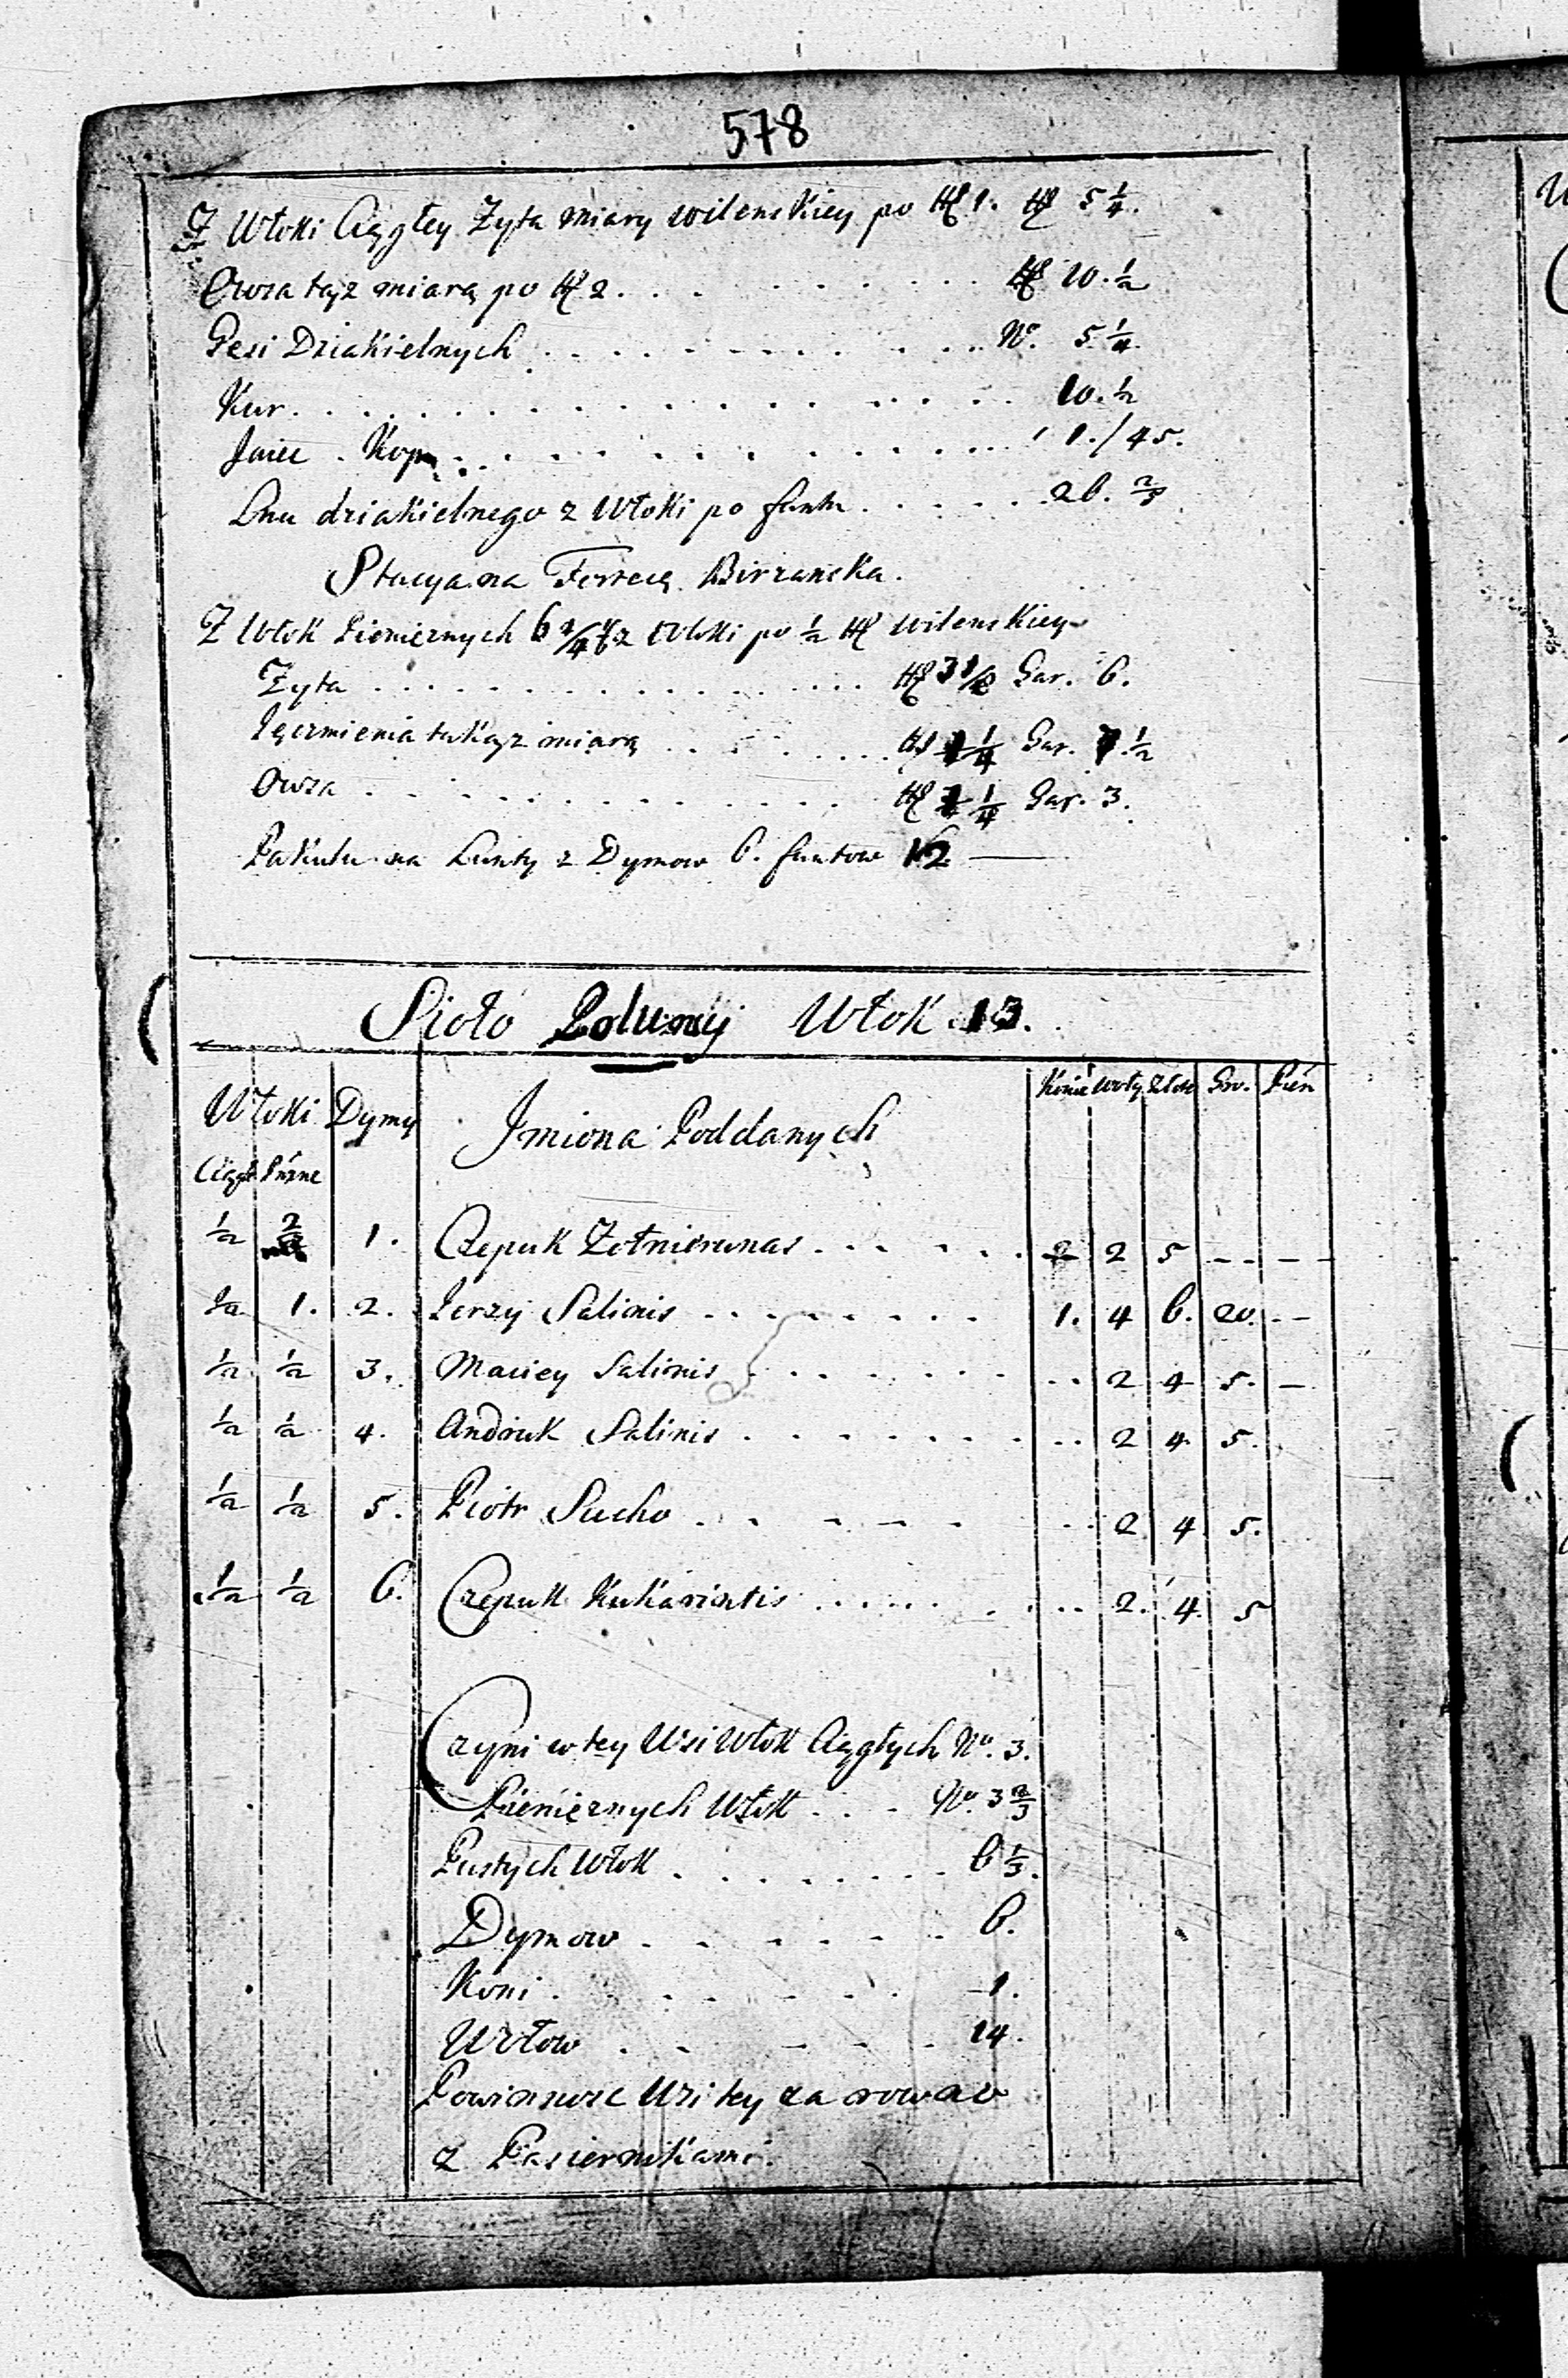 578
Z Włoki Ciągłey Żyta miary wilenskiey po 1. 5 1/4.
Owsa tąż miarą po 2 . . . 10. 1/2
Gęsi Dziakielnych . . . No. 5 1/4.
Kur . . . 10. 1/2
Jaiec . Kop . . . 1./45.
Lnu dziakielnego z Włoki po funtu . . . 26. 2/3
Stacya na Birzanska.
Z Włok Pienieznych 6 z Włoki po 1/2 wilenskiey
Żyta . . . 3 Gar. 6.
Jęczmienia takąż miarą . . . 1/4 Gar. 7. 1/2
Owsa . . . 1/4 Gar. 3.
Pakułu na Lunty z Dymow 6. funtow 12 —
Sioło Poluncy Włok 13.
Włoki Dymy Jmiona Poddanych Konie Woły Złote Gro. Pień
Ciągł
1/2 2/3 1. Czepuk Żołnierunas . . . 2 5 - - -
1/2 1. 2. Jerzy Salinis . . . 1. 4 6. 20. - -
1/2 1/2 3. Maciey Salinis . . . 2 4 5. —
1/2 1/2 4. Andruk Salinis . . . 2 4 5.
1/2 1/2 5. Piotr Sucho . . . 2 4 5.
1/2 1/2 6. Czepuk . . . 2. 4. 5
Czyni w tey Wsi Włok Ciągłych No. 3.
Pienięznych Włok . . . No. 3 2/3
Pustych Włok . . . 6 1/3.
Dymow . . . 6.
Koni . . . 1.
Wołow . . . 14.
Powinnosc Wsi tey za rowno
z Pasiernikami.